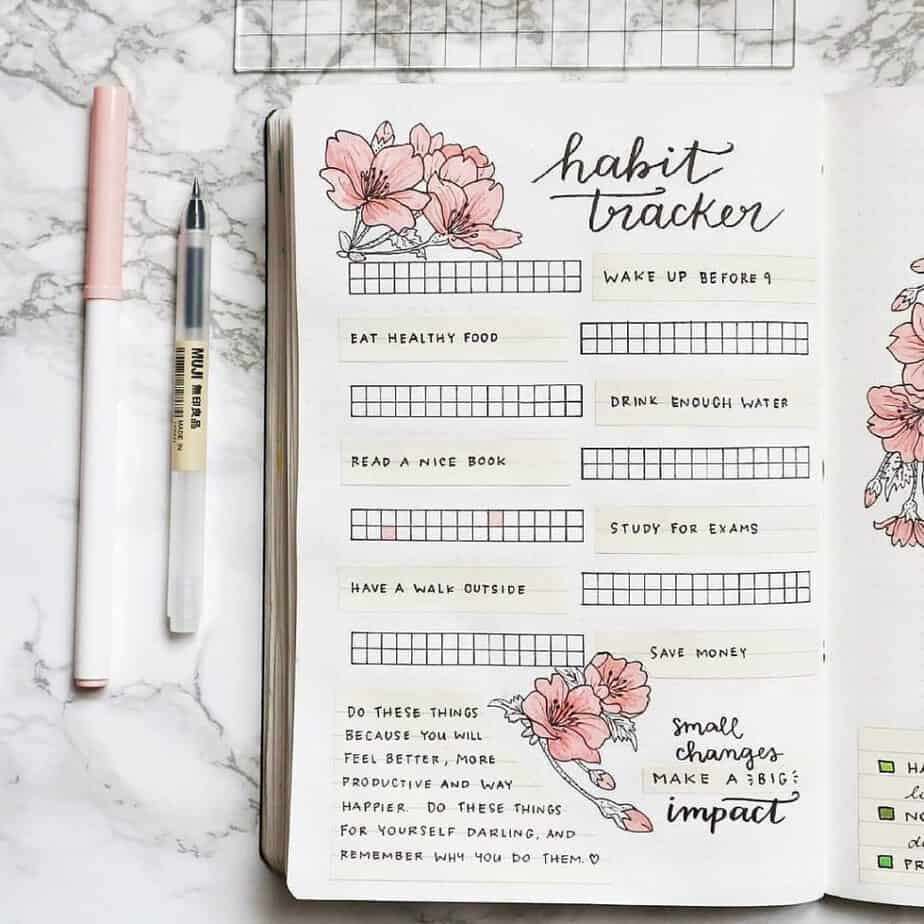 habit
tracker
WAKE UP BEFORE 9
EAT HEALTHY FOOD
DRINK ENOUGH WATER
READ A NICE BOOK
STUDY FOR EXAMS
HAVE A WALK OUTSIDE
SAVE MONEY
DO THESE THINGS
BECAUSE YOU WILL
FEEL BETTER, MORE
PRODUCTIVE AND WAY
HAPPIER. DO THESE THINGS
FOR YOURSELF DARLING, AND
REMEMBER WHY YOU DO THEM.♡
small
changes
MAKE A BIG
impact
MUJI 無印良品
MADE IN